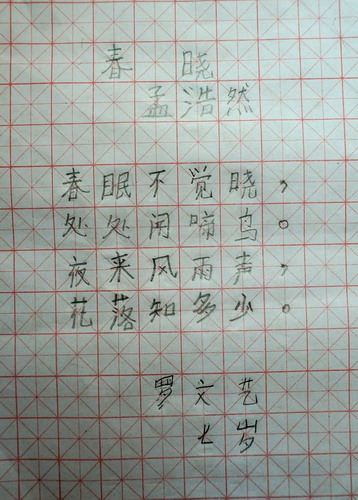 春晓
孟浩然
春眠不觉晓，
处处闻啼鸟。
夜来风雨声，
花落知多少。
罗文艺
七岁